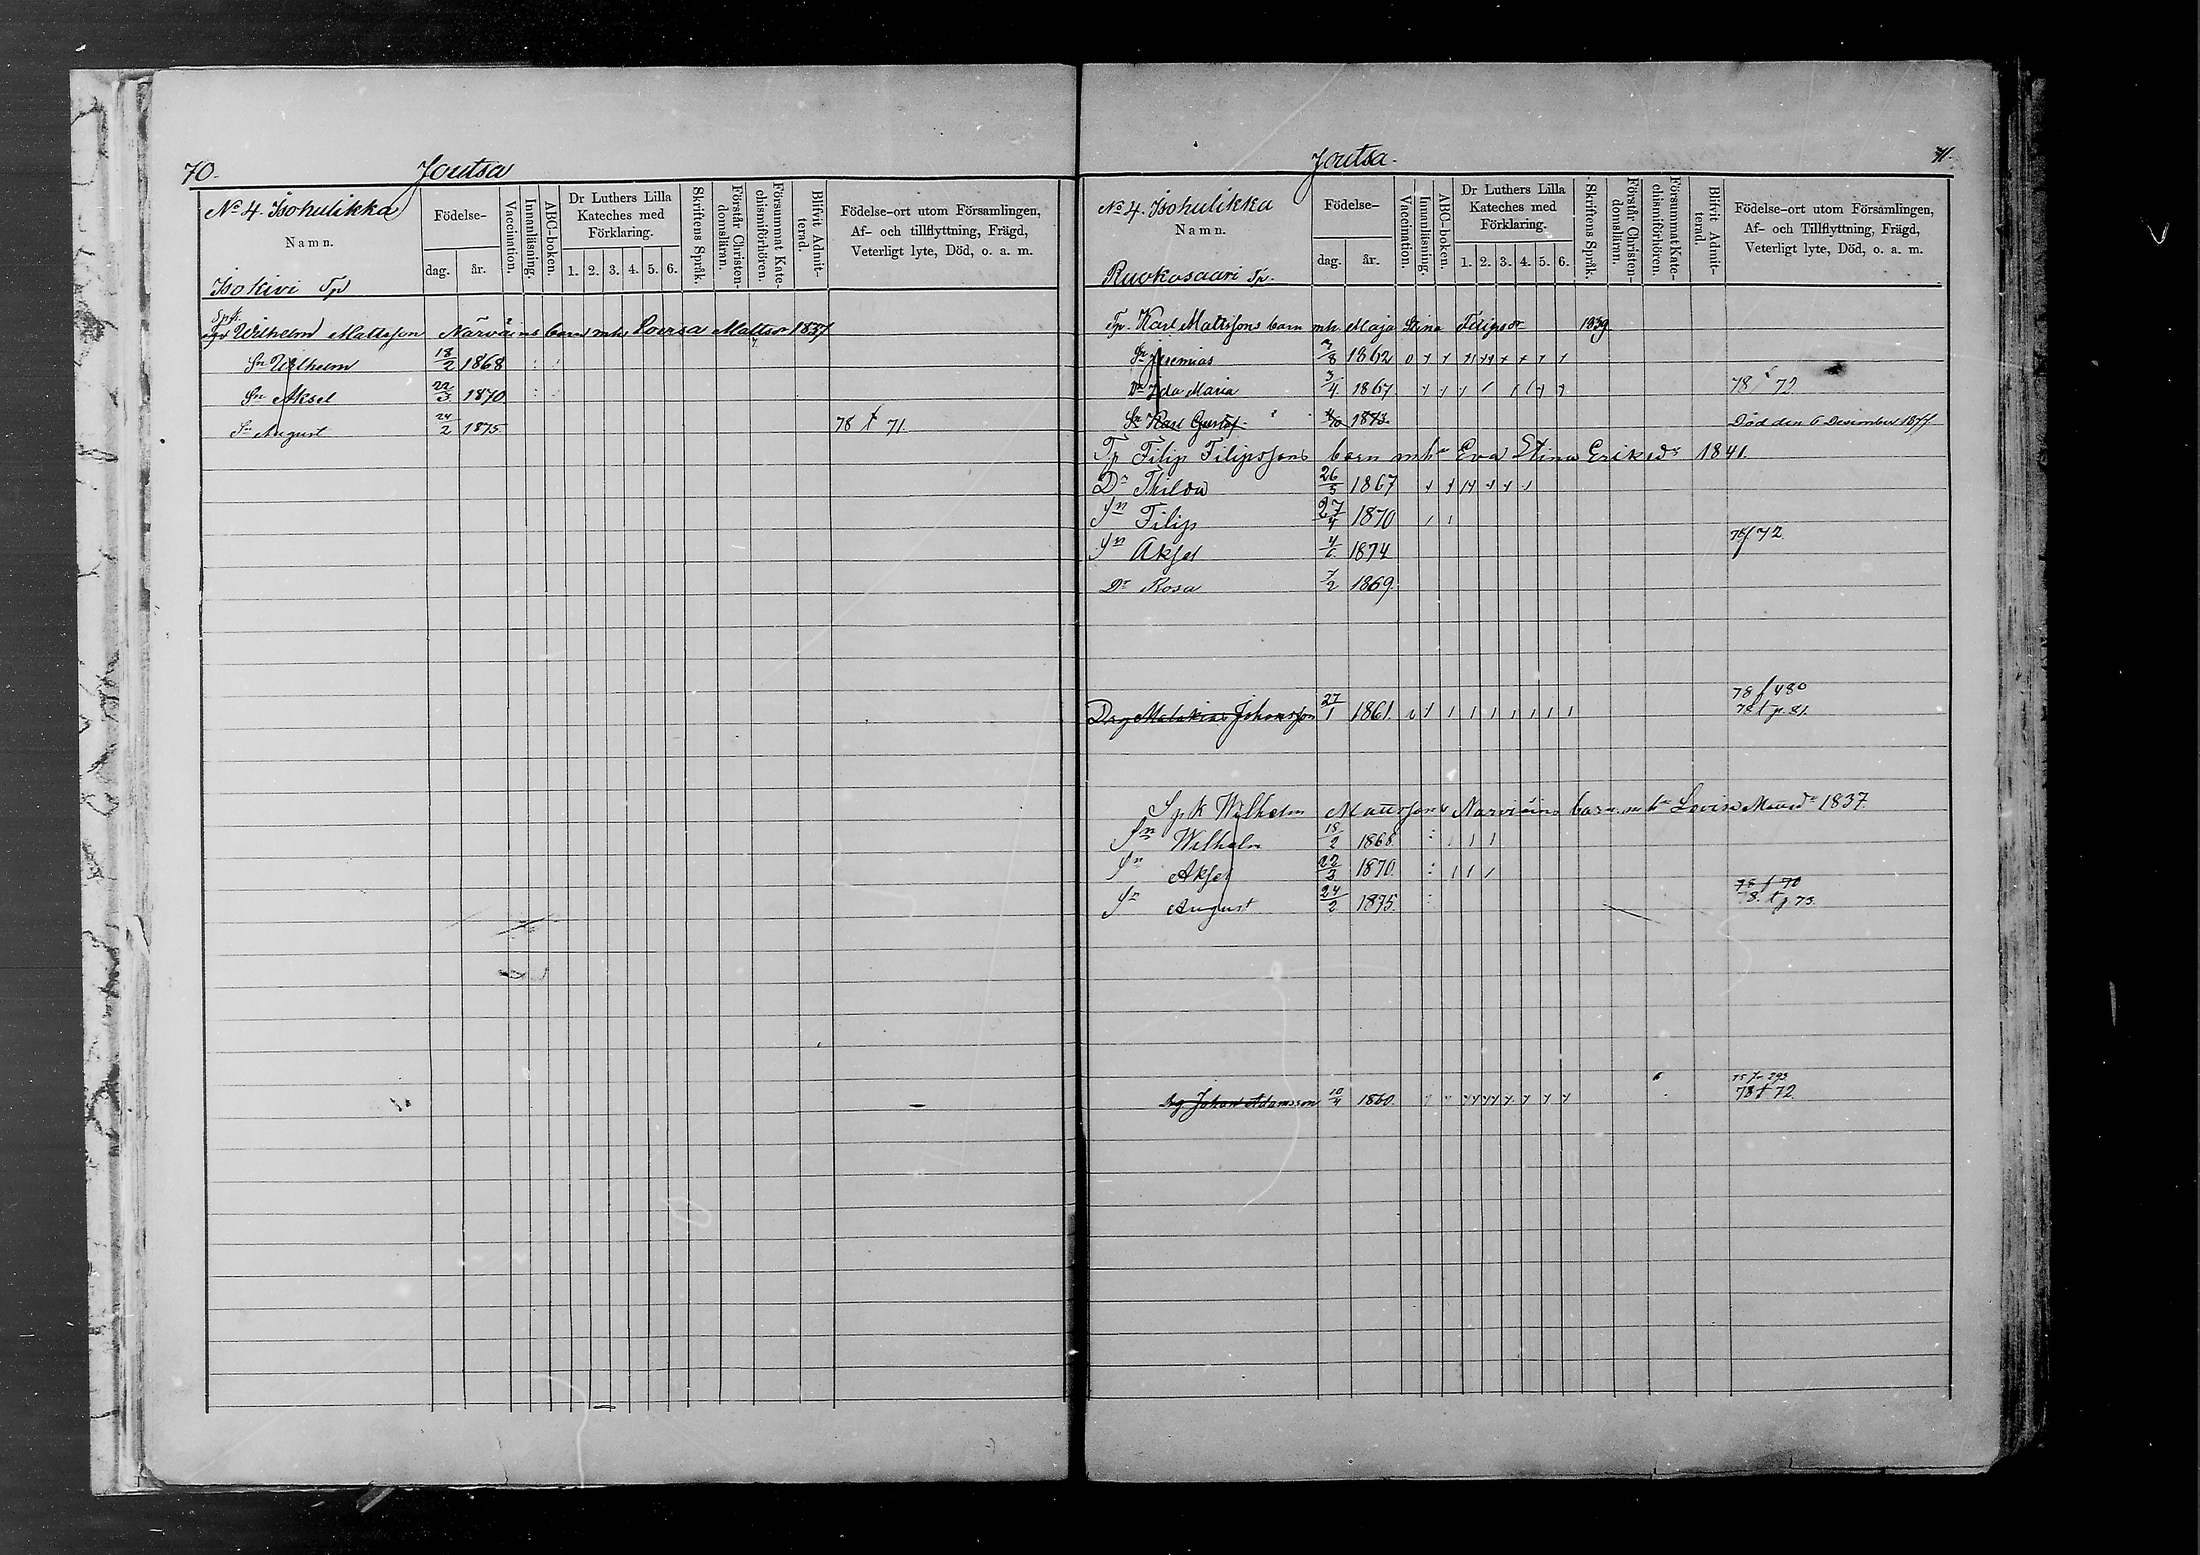 70.
Joutsa
No 4. Isohulikka
Namn.
Isokivi Tp
Födelse-
dag. år.
Vaccination.
Innanläsning.
ABC-boken.
Dr Luthers Lilla Kateches med Förklaring.
1. 2. 3. 4. 5. 6.
Skriftens Språk.
Förstår Christendomsläran.
Försummat Katechismiförhören.
Blifvit Admitterad.
Födelse-ort utom Församlingen, Af- och tillflyttning, Frägd, Veterligt lyte, Död, o. a. m.
Spk.
Wilhelm Mattsson Närväins barn mhr Lovisa Mattsdr 1837
Sn Wilhelm 18/2 1868
Sn Aksel 22/3 1870
Sn August 24/2 1875 78 t 71
Joutsa.
71.
No 4. Isohulikka
Namn.
Ruokosaari Tp.
Födelse-
dag. år.
Vaccination.
Innanläsning.
ABC-boken.
Dr Luthers Lilla Kateches med Förklaring.
1. 2. 3. 4. 5. 6.
Skriftens Språk.
Förstår Christendomsläran.
Försummat Katechismiförhören.
Blifvit Admitterad.
Födelse-ort utom Församlingen, Af- och Tillflyttning, Frägd, Veterligt lyte, Död, o. a. m.
Tp. Karl Mattssons barn mh. Maja Stina Filipsdr 1839
Sn Jeremias 3/8 1862
Dr Ida Maria 3/4 1867 78 t 72
Sn Karl Gustaf 1873 Död den 6 Desember 1877
Tp Filip Filipssons barn mhr Eva Stina Eriksdr 1841.
Dr Thilda 26/5 1867
Sn Filip 27/4 1870
Sn Aksel 4/6 1874 78 f 72
Dr Rosa 7/2 1869.
Drg Malakias Johansson 27/1 1861. 78 f 480
78 t p. 81.
Spk Wilhelm Mattssons Närväins barn mhr Lovisa Mattsdr 1837.
Sn Wilhelm 18/2 1868
Sn Aksel 22/3 1870
Sn August 24/2 1875. 78 f 70
78. t p 73.
Drg Johan Adamsson 10/4 1860. 75 fr 293
78 t 72.